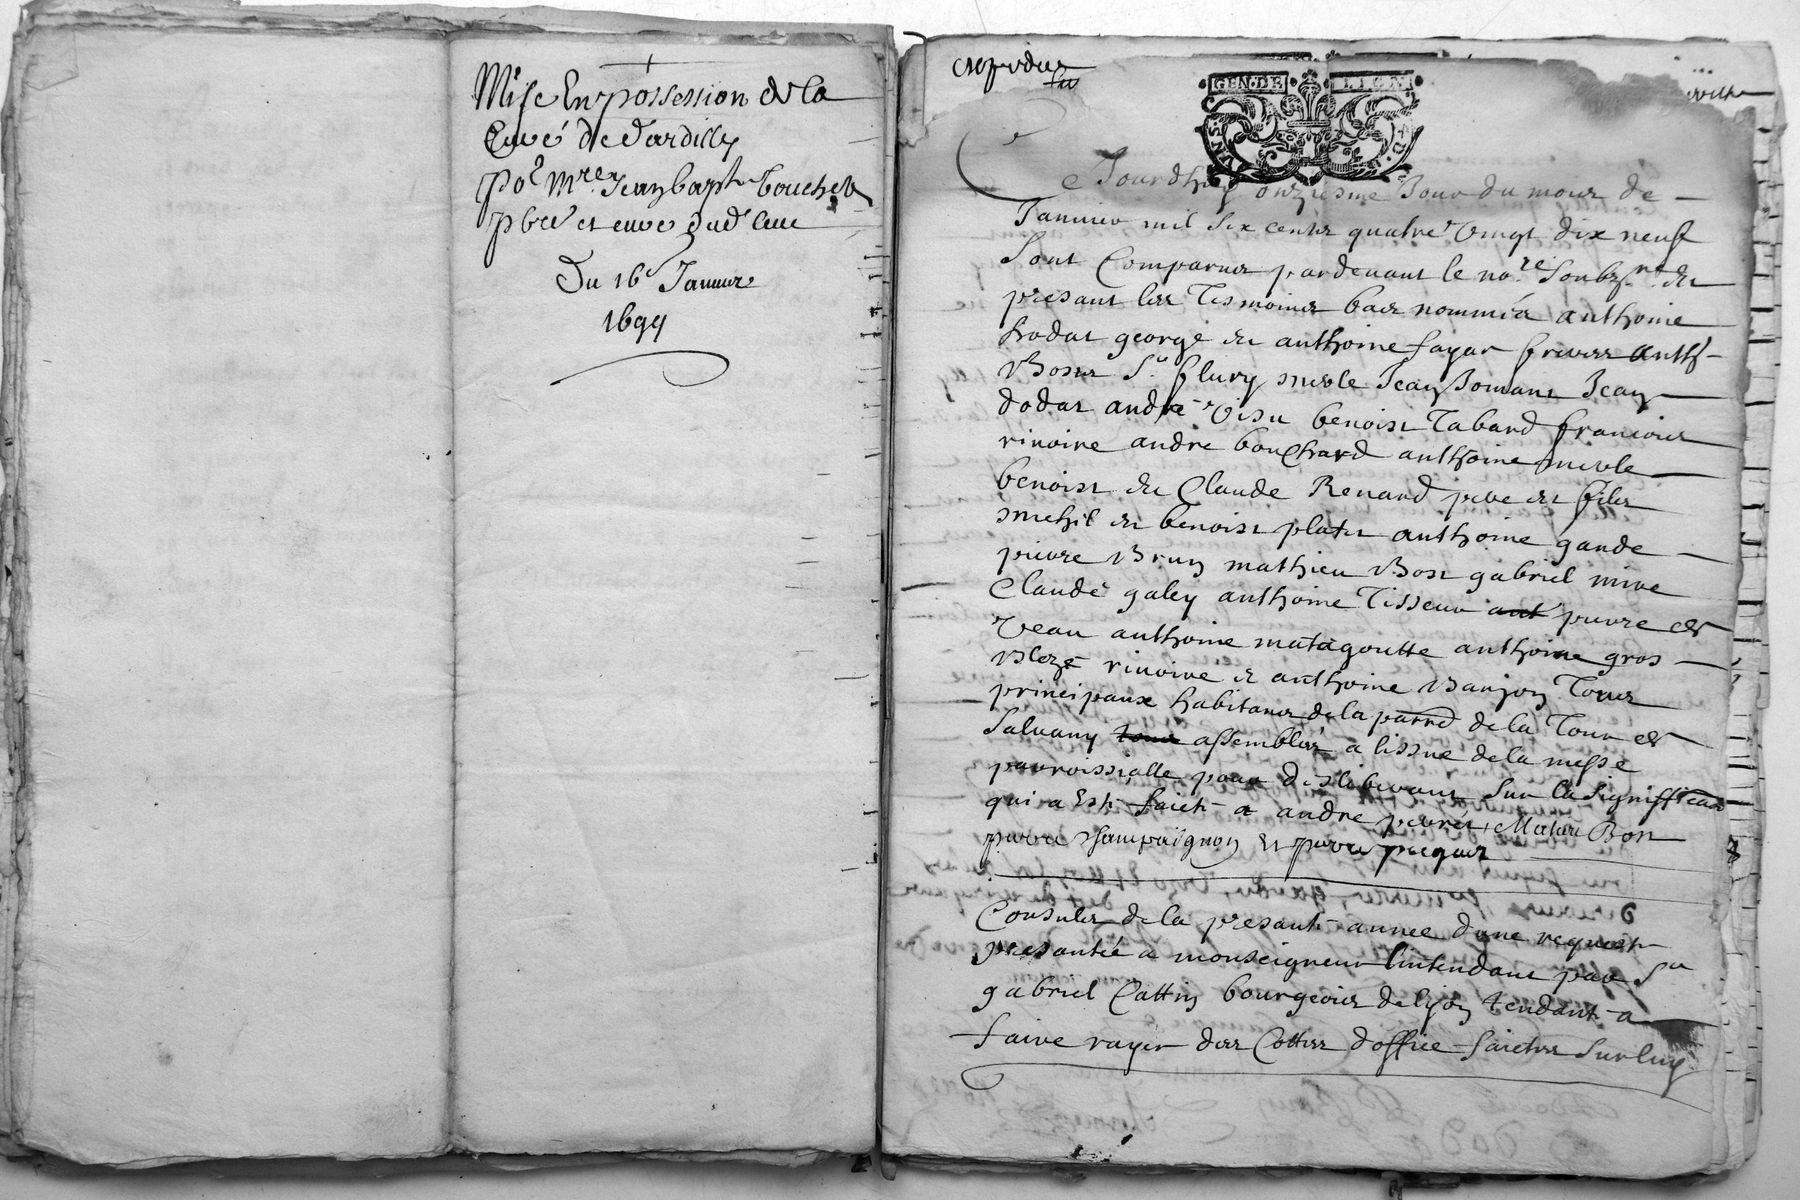 Mise En possession de la
Cure de Dardilly
po.r Mre Jean bapt.
pbre et curé dud. lieu
Du 16e Janvier
1699
GEN·DE LION
Ce Jourdhuy onziesme Jour du mois de
Janvier mil six cents quatre vingt dix neuf
sont Comparus pardevant le no.re soubz.né et
presant les Tesmoins bas nommés anthoine
dodat george et anthoine fayar freres anth.
Bosts S.r flury Jean Jean
dodat andre benoist Tabard francois
rivoire andre bouchard anthoine
benoist et Claude Renard pere et fils
michel et benoist platet anthoine gande
pierre Brun mathieu Bost gabriel mire
Claude galey anthoine Tisseur ant pierre et
veau anthoine matagoutte anthoine gros
Bleze rivoire et anthoine Banjon Tous
principaux habitans de la parr.e de la Tour et
Salvany tous assemblés a lissue de la messe
parroissialle pour deliberant sur la signiffica.on
qui a Esté faicte a andre Bost
pierre Champaignon Et pierre
Consuls de la presante annee dune requeste
presantée a monseigneur lintendant par S.r
gabriel Cattin bourgeois de lyon tendante a
faire rayer des Cottes doffice faictes sur luy